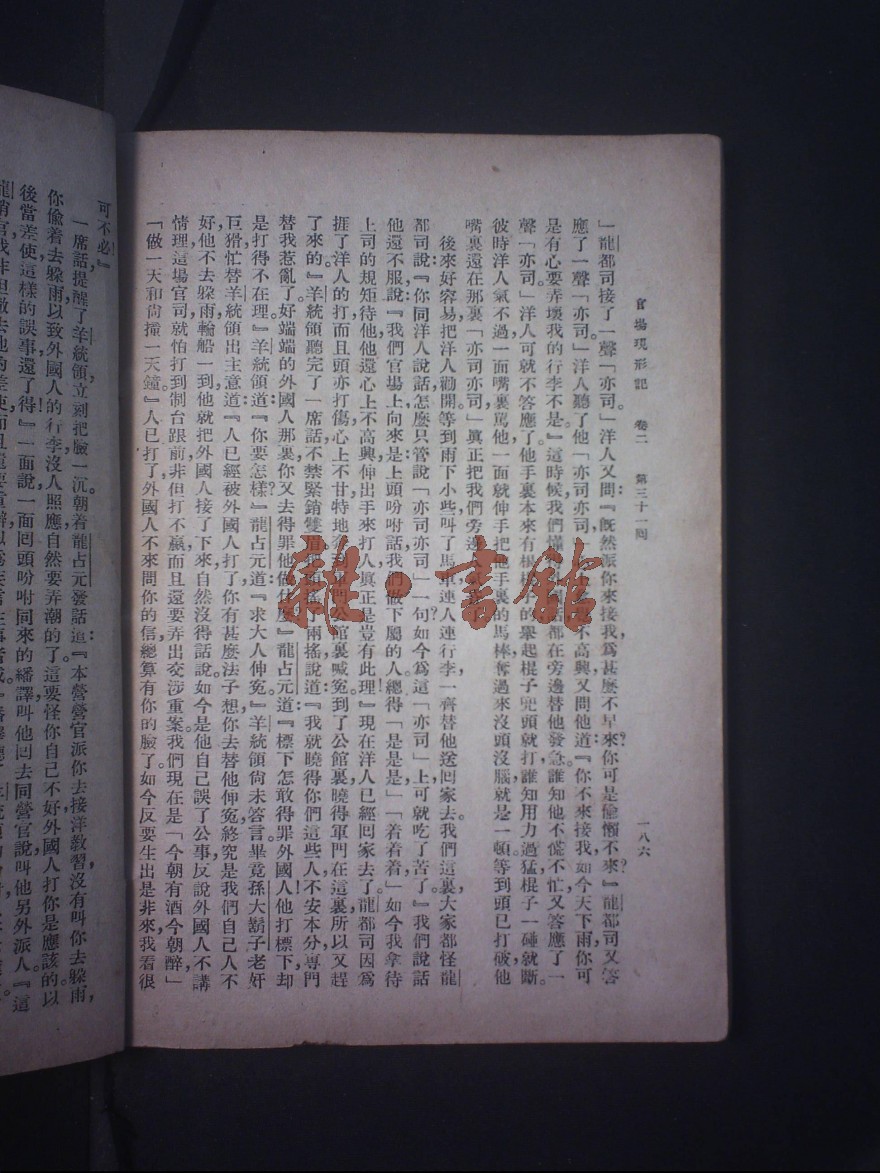 官場現形記 卷二 第三十一回
一八六
」龍都司接了一聲「亦司」洋人又問:『旣然派你來接我,爲甚麼不早來?你可是偸懶不來?』龍都司又答
應了一聲「亦司」洋人聽了他「亦司亦司」不高興又問他道:『你不來接我,如今天下雨,你可
是有心要弄壞我的行李不是。』這時候,我們懂話都在旁邊替他發急,誰知他不慌不忙又答應了一
聲「亦司」洋人可就不答應了。他手裏本來有根的舉起棍子兜頭就打,誰知用力過猛,棍子一碰就斷。
彼時洋人氣不過,一面嘴裏罵他,一面就伸手把他手裏的馬棒,奪過來沒頭沒腦,就是一頓。等到頭已打破,他
嘴裏還在那裏「亦司亦司」眞正把我們旁邊
後來好容易把洋人勸開。等到雨下小些,叫了馬車,連人連行李一齊替他送回家去。我們這裏大家都怪龍
都司說:『你同洋人說話,怎麼只管說「亦司亦司」一句?如今爲這「亦司」上可就吃了苦了。』我們說話
他還不服,說:『我們官場上向來是上頭吩咐話,我們做下屬的人總得「是是是」「着着着」如今我拿待
上司的規矩待他,他還心上不高興,伸出手來打人,眞正是豈有此理!』現在洋人已經回家去了。龍都司因爲
捱了洋人的打,而且頭亦打傷,心上不甘,特地到軍門公館裏喊冤。到了公館裏,曉得軍門在這裏,所以又趕
了來的。』羊統領聽完了一席話,不禁緊鎖雙眉,把頭搖了兩搖,說道:『我就曉得你們這些人,不安本分,專門
替我惹亂了。好端端的外國人那裏,你又去得罪他做什麼?』龍占元道:『標下怎敢得罪外國人!他打標下,却
是打得不在理。』羊統領道:『你要怎樣?』龍占元道:『求大人伸冤。』羊統領尙未答言。畢竟孫大鬍子老奸
巨猾,忙替羊統領出主意道:『人已經被外國人打了,你有甚麼法子想?你去替他伸冤,終究是我們自己人不
好,他不去躱雨,輪船一到,他就把外國人接了下來,自然沒得話說。如今是他自己誤了公事,反說外國人不講
情理,這場官司,就怕打到制台跟前,非但打不贏,而且還要弄出交涉重案。我們現在是「今朝有酒今朝醉」
「做一天和尙撞一天鐘。』人已打了,外國人不來問你的信,總算有你的臉了。如今反要生出是非來,我看很
可不必!』
一席話提醒了羊統領,立刻把臉一沉,朝着龍占元發話道:『本營營官派你去接洋敎習,沒有叫你去躱雨,
你偸着去躱雨,以致外國人的行李沒人照應,自然要弄潮的了。這要怪你自己不好,外國人打你是應該的。以
後當差使,這樣的誤事還了得!』一面說,一面回頭吩咐同來的繙譯,叫他回去同營官說,叫他另外派人。『這